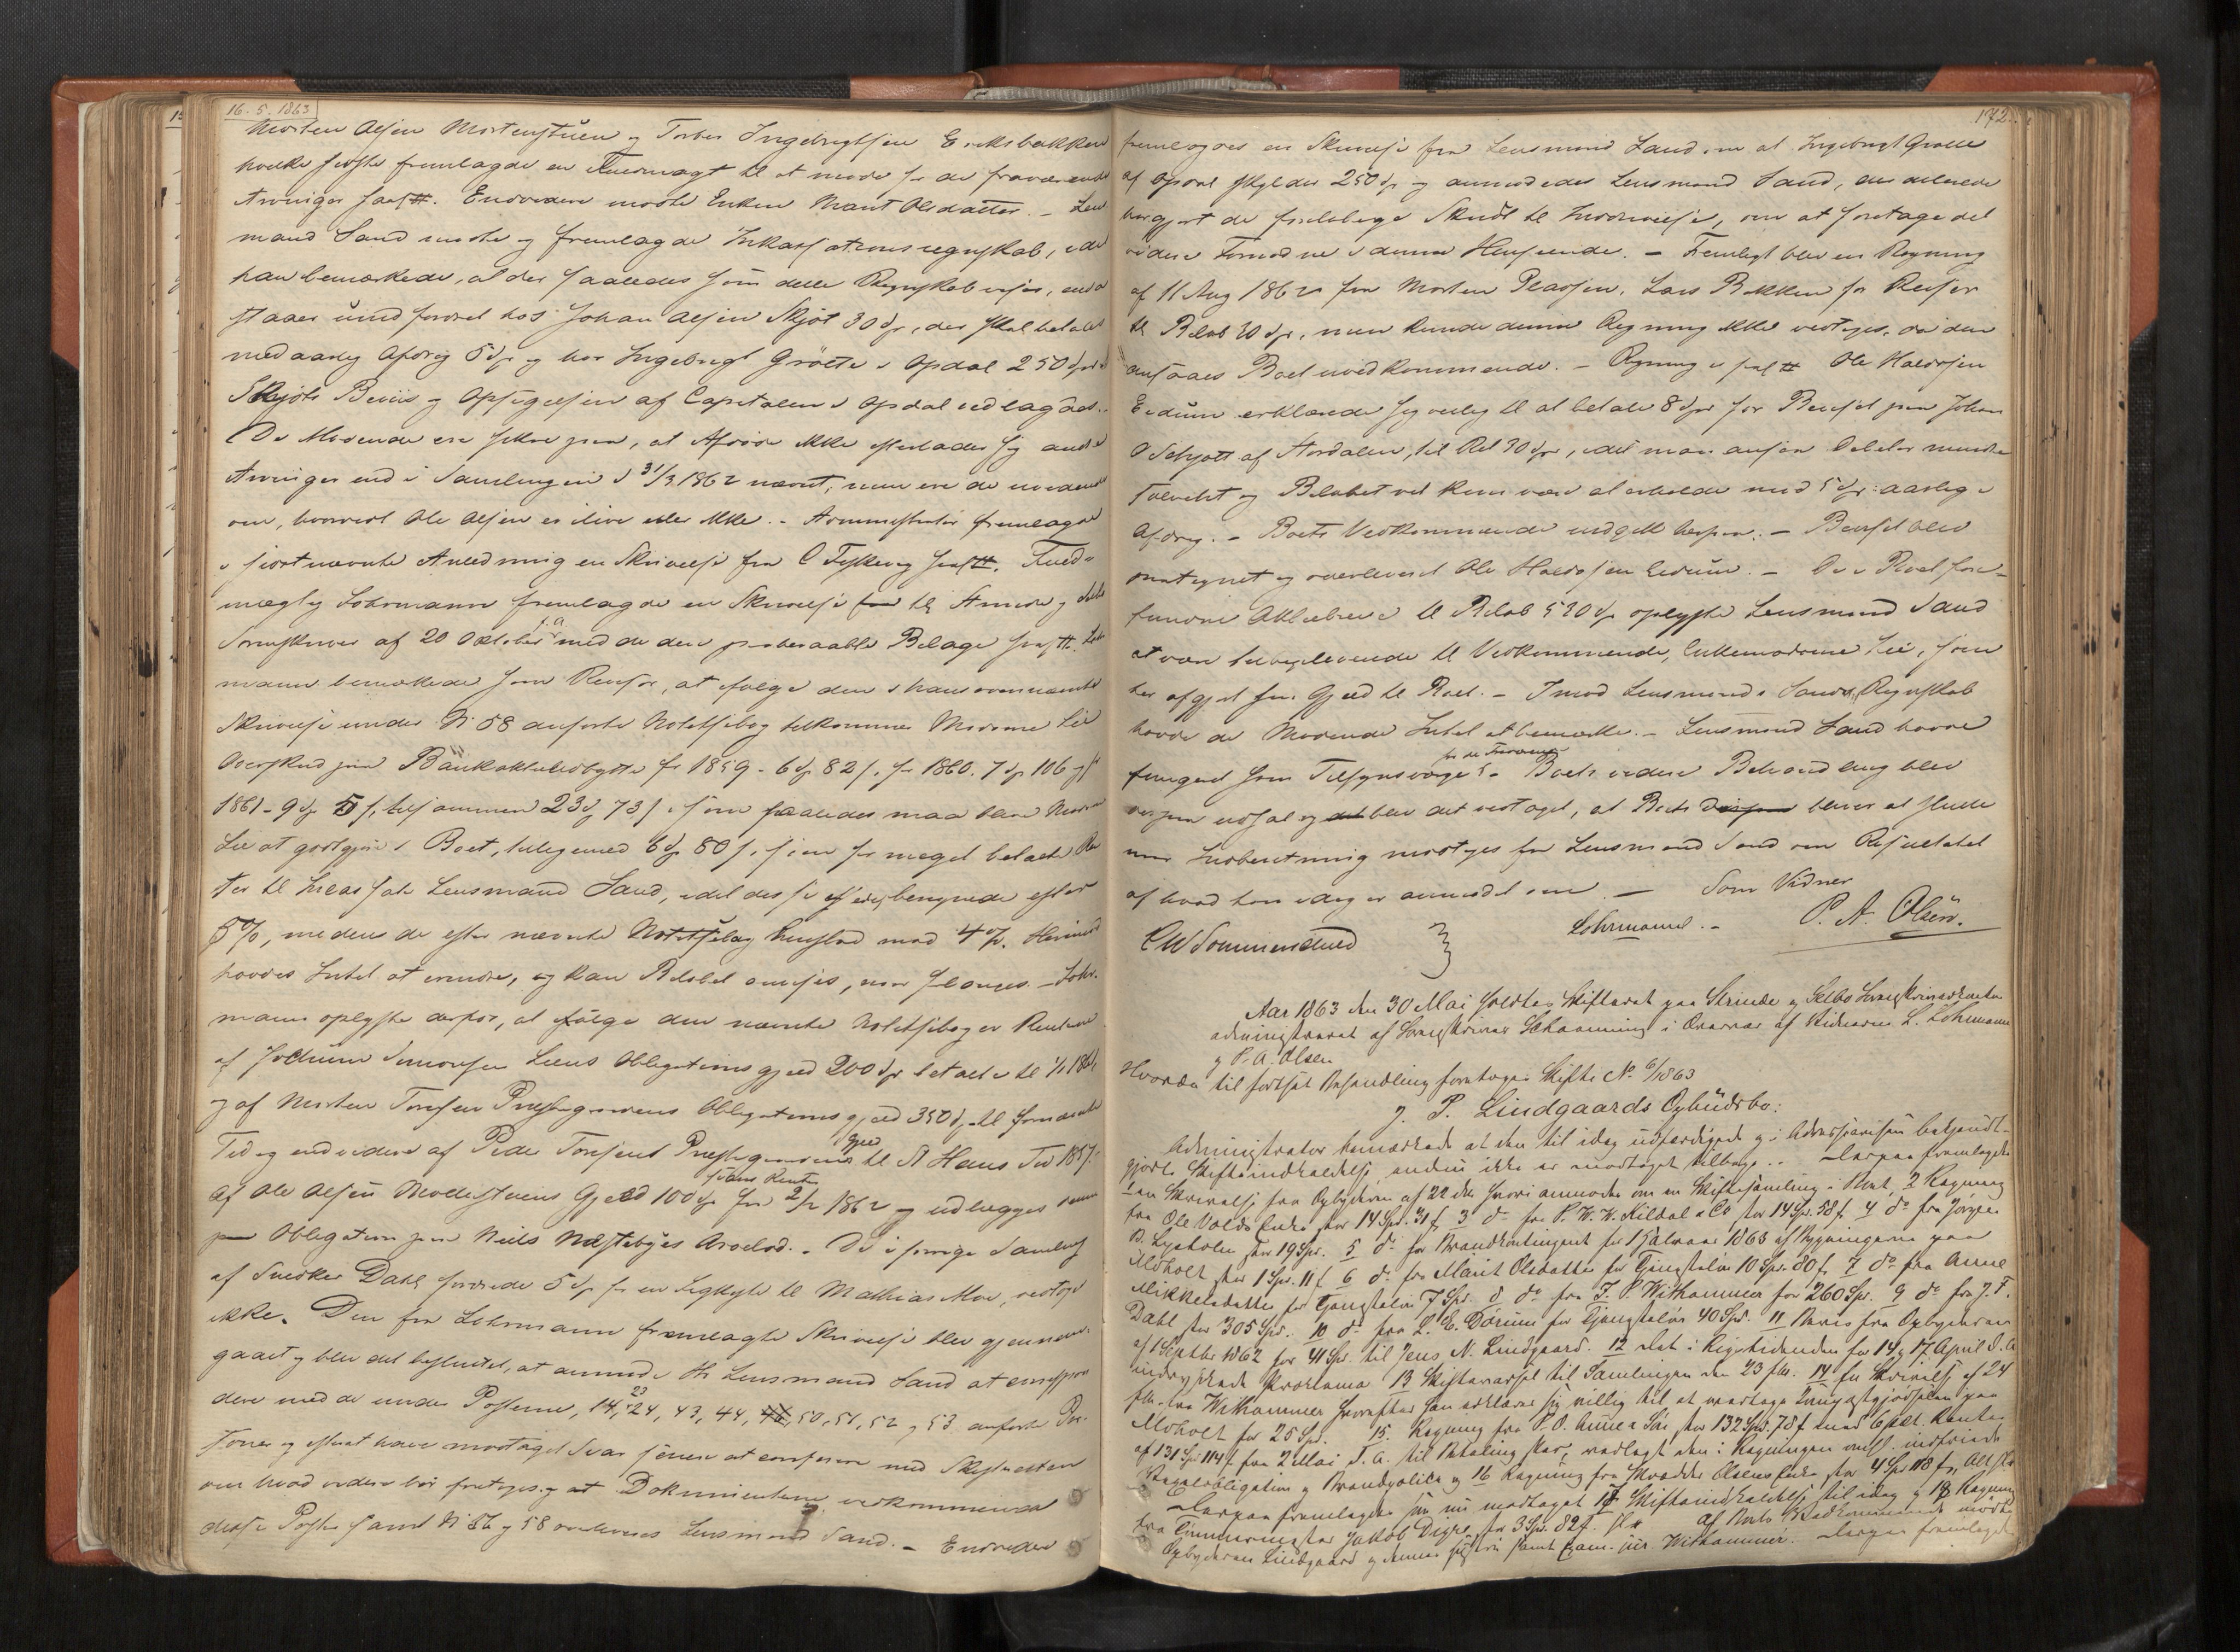 16. 5. 1863
Morten Olsen Mortenstuen og Torber Ingebrigtsen Eriksbakken
hvilke sidste fremlagde en Fuldmagt til at møde for de fraværende
Arvinger saal##. Endvidere mødte Enken Marit Olsdatter. – Lens
mand Sand mødte og fremlagde Inkassationsregnskab, idet
han bemærkede, at der saaledes som dette Regnskab viser, endnu
staaer uindfordret hos Johan Olsen Skjøt 30 Spd, der skal betales
med aarlig Afdrag 5 Spd og hos Ingebrigt Grøtte i Opdal 250 Spd
Skjøts Beviis og Opsigelsen af Capitalen i Opdal vedlagdes.
De Mødende ere sikre paa, at Afdøde ikke efterlader sig andre
Arvinger end i Samlingen d 31/3 1862 nævnt, men ere de uvidende
om, hvorvidt Ole Olsen er ilive eller ikke. – Administrator fremlagde
i sidstnævnte Anledning en Skrivelse fra O Tyskevig saal##. Fuld-
mægtig Lohrmann fremlagde en Skrivelse til Strinde og Selbo
Sorenskriver af 20 Oktober f. A med de den paaberaabte Bilage saal##. Lohr
mann bemærkede som Revisor, at ifølge den i hans ovennævnte
Skrivelse under N 58 anførte Notitsebog tilkommer Madame Lie
Overskud paa Bankaktieudbytte for 1859 – 6 Spd 82 s, for 1860. 7 Spd 106 s og for
1861 – 9 Spd 5 s, tilsammen 23 Spd 73 s, som saaledes maa blive Madame
Lie at godtgjøre i Boet, tilligemed 6 Spd 80 s, som for meget betalte Ren
ter til Incassator Lensmand Sand, idet disse ere beregnede efter
5 %, medens de efter nævnte Notitsebog kun stod mod 4 %. Herimod
havdes Intet at erindre, og kan Beløbet anvises, naar forlanges. – Lohr-
mann oplyste derhos, at ifølge den nævnte Notitsebog er Renterne
af Jochum Simonsen Leens Obligationsgjæld 200 Spd betalte til 1/1 1861
og af Morten Toresen Prestegaardens Obligationsgjæld 350 Spd til samme
Tid og endvidere af Peder Toresens Prestegaardens Gjæld til A Hans Tid 1857.
Af Ole Olsen Moelistuens Gjæld 100 Spd svares Rente fra 2/2 1862 og udlægges som
Obligation paa Niels Næstebyes Arvelod. – De i forrige Samling
af Snedker Dahl fordrede 5 Spd for en Liigkiste til Mathias Moe, vedtoges
ikke. Den fra Lohrmann fremlagte Skrivelse blev gjennem-
gaaet og blev det besluttet, at anmode Hr Lensmand Sand at confere
dere med de under Posterne, 14, 23, 24, 43, 44, 50, 51, 52 og 53 anførte Per-
soner og efterat have modtaget Svar senere at conferere med Skifteretten
om hvad videre bør foretages, og at Dokumenterne vedkommende
disse Poster samt N 56 og 58 overleveres Lensmand Sand. – Endvidere
172.
fremlagdes en Skrivelse fra Lensmand Sand om at Ingebrigt Grøtte
af Opdal skylder 250 Spd og anmodedes Lensmand Sand, der allerede
har gjort de foreløbige Skridt til Inddrivelse, om at foretage det
videre Fornødne i denne Henseende. – Fremlagt blev en Regning
af 11 Aug 1862 fra Morten Klassen, Lars Bekken for Reiser
til Beløb 20 Spd, men kunde denne Regning ikke vedtages, da den
ansaaes Boet uvedkommende. – Regning er saal## Ole Haldosen
Eidum erklærede sig villig til at betale 8 Spd for Beviset paa Johan
O Schjøtt af Stordalen, til Rest 30 Spd, idet man ansaa Debitor mindre
solvent og Beløbet vel kun være at erholde med 5 Spd aarlig i
Afdrag. – Boets Vedkommende indgik herpaa. – Beviset blev
paategnet og overleveret Ole Haldosen Eidum. – De i Boet fore-
fundne Aktiebreve til Beløb 530 Spd oplyste Lensmand Sand
at være tilbageleverede til Vedkommende, Enkemadame Lie, som
har afgjort sin Gjæld til Boet. – Imod Lensmand Sands Regnskab
havde de Mødende Intet at bemærke. – Lensmand Sand havde
fungeret som Tilsynsværge for de Fraværende. – Boets videre Behandling blev
derpaa udsat og blev det vedtaget, at Boet bliver at slutte
naar Indberetning modtages fra Lensmand Sand om Resultatet
af hvad han idag er anmodet om. –
Som Vidner
CW Sommerschield
Lohrmann. –
P. A. Olsen.
Aar 1863 den 30 Mai holdtes Skifteret paa Strinde og Selbo Sorenskriverkontor
administreret af Sorenskriver Schaanning i Overvær af Vidnerne L. Lohrmann
og P. A. Olsen
Hvorda til fortsat Behandling foretoges Skifte No 6/1863
J. P. Lindgaards Opbudsbo:
Administrator bemærkede at den til idag udfærdigede og i Adresseavisen bekjendt-
gjorte Skifteindkaldelse endnu ikke er modtaget tilbage. – Derpaa fremlagdes
1 en Skrivelse fra Opbyderen af 22 ds hvori anmodes om en Skiftesamling i Boet, 2 Regning
fra Ole Volds Enke stor 14 Spd. 31 s. 3 do fra P. W. W. Kildal & Co stor 14 Spd. 58 s. 4 do fra Jørgen
B. Lysholm stor 19 Spd. 5 do for Brandkontingent for 1 Halvaar 1863 af Bygningerne paa
Moholt stor 1 Spd. 11 s 6 do fra Marit Olsdatter for Tjenesteløn 10 Spd. 80 s. 7 do fra Anne
Mikkelsdatter for Tjenesteløn 7 Spd. 8 do fra J. P. Withammer for 260 Spd. 9 do fra J. F.
Dahl stor 305 Spd. 10 do fra L. E. Dørum for Tjenesteløn 40 Spd. 11 Bevis fra Opbyderen
af 1 Septbr 1862 for 41 Spd. til Jens N. Lindgaard. 12 Det i Rigstidenden for 14 og 17 April d. A
indrykkede Proklama 13 Skiftevarsel til Samlingen den 23 ds. 14 En Skrivelse af 24
ds. fra Withammer hvorefter han erklærer sig villig til at modtage Tingestgjødselen paa
Moholt for 25 Spd. 15. Regning fra P. O. Aune & Søn stor 132 Spd. 78 s. med 6 pCt. Renter
af 131 Spd 114 s fra 2 Mai d. A. til Betaling skeer, vedlagt den i Regningen omh. indfriede
Vexelobligation og Brandpolice og 16 Regning fra Skrædder Olsens Enke stor 4 Spd 118 s, Alt sl#
Derpaa fremlagdes nu modtaget 17 Skifteindkaldelse til idag og 18 Regning
fra Tømmermester Jakob Digre for 3 Spd. 82 s. sl# Af Boets Vedkommende mødte
Opbyderen Lindgaard og dennes samt Exam. jur. Withammer. – Derpaa fremlagdes